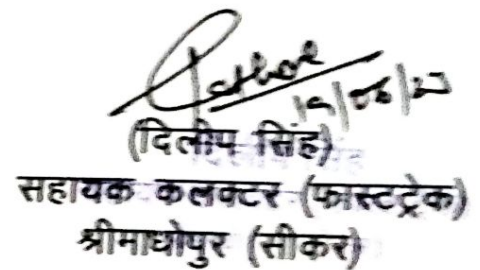 19/06/23
(दिलीप सिंह)
सहायक कलक्टर (फास्टट्रेक)
श्रीमाधोपुर (सीकर)